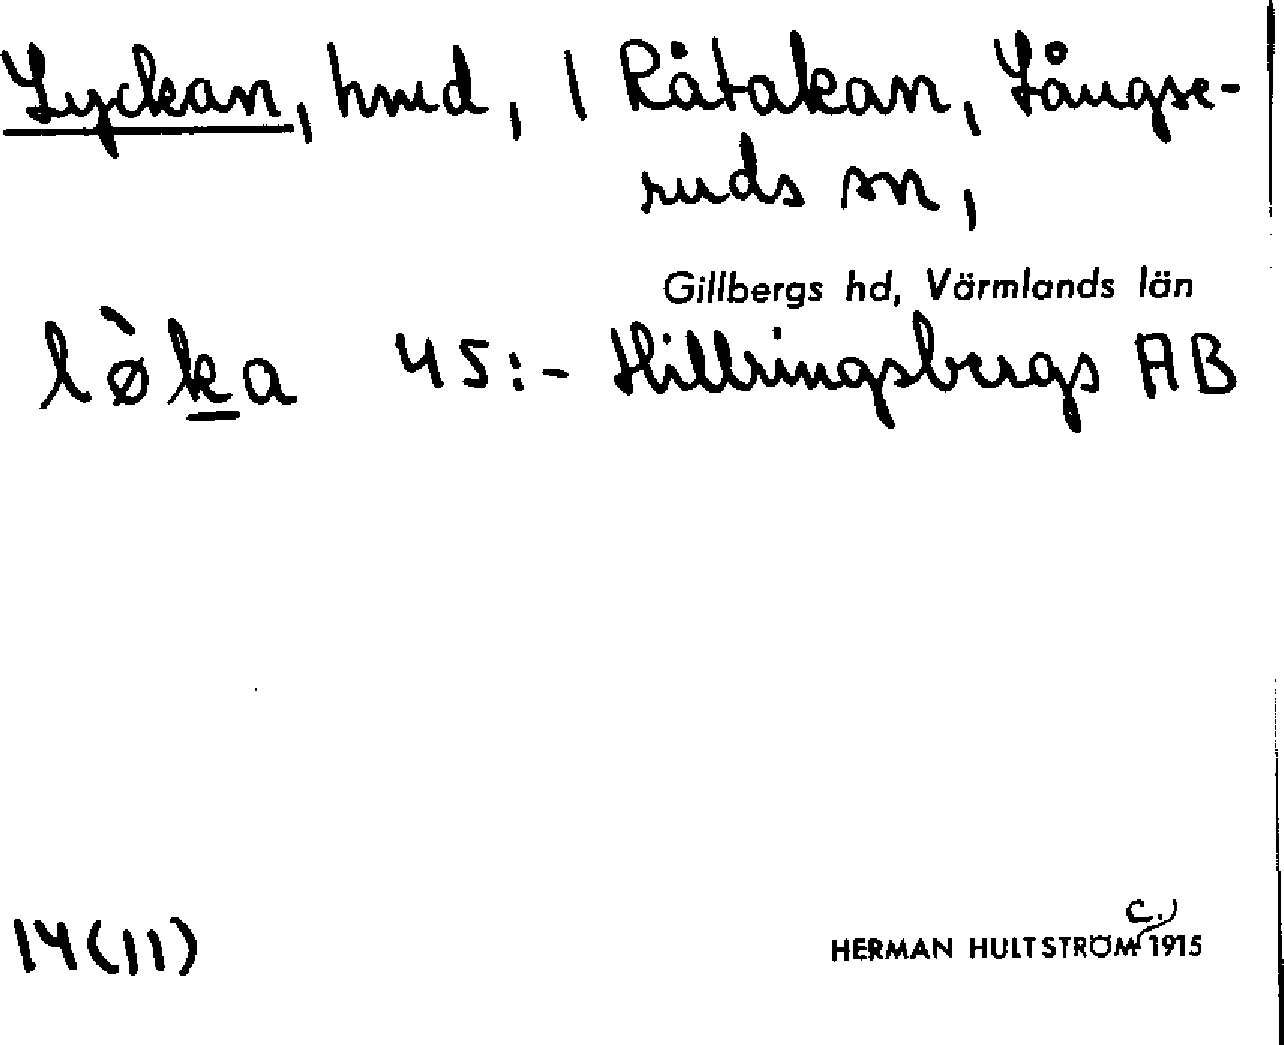 Lyckan, hmd, 1 Råtakan, Långse-
ruds sn,
Gillbergs hd, Värmlands län
lø̀ḵa 45:- Hillringsbergs AB
14(11)
c.
HERMAN HULTSTRÖM 1915